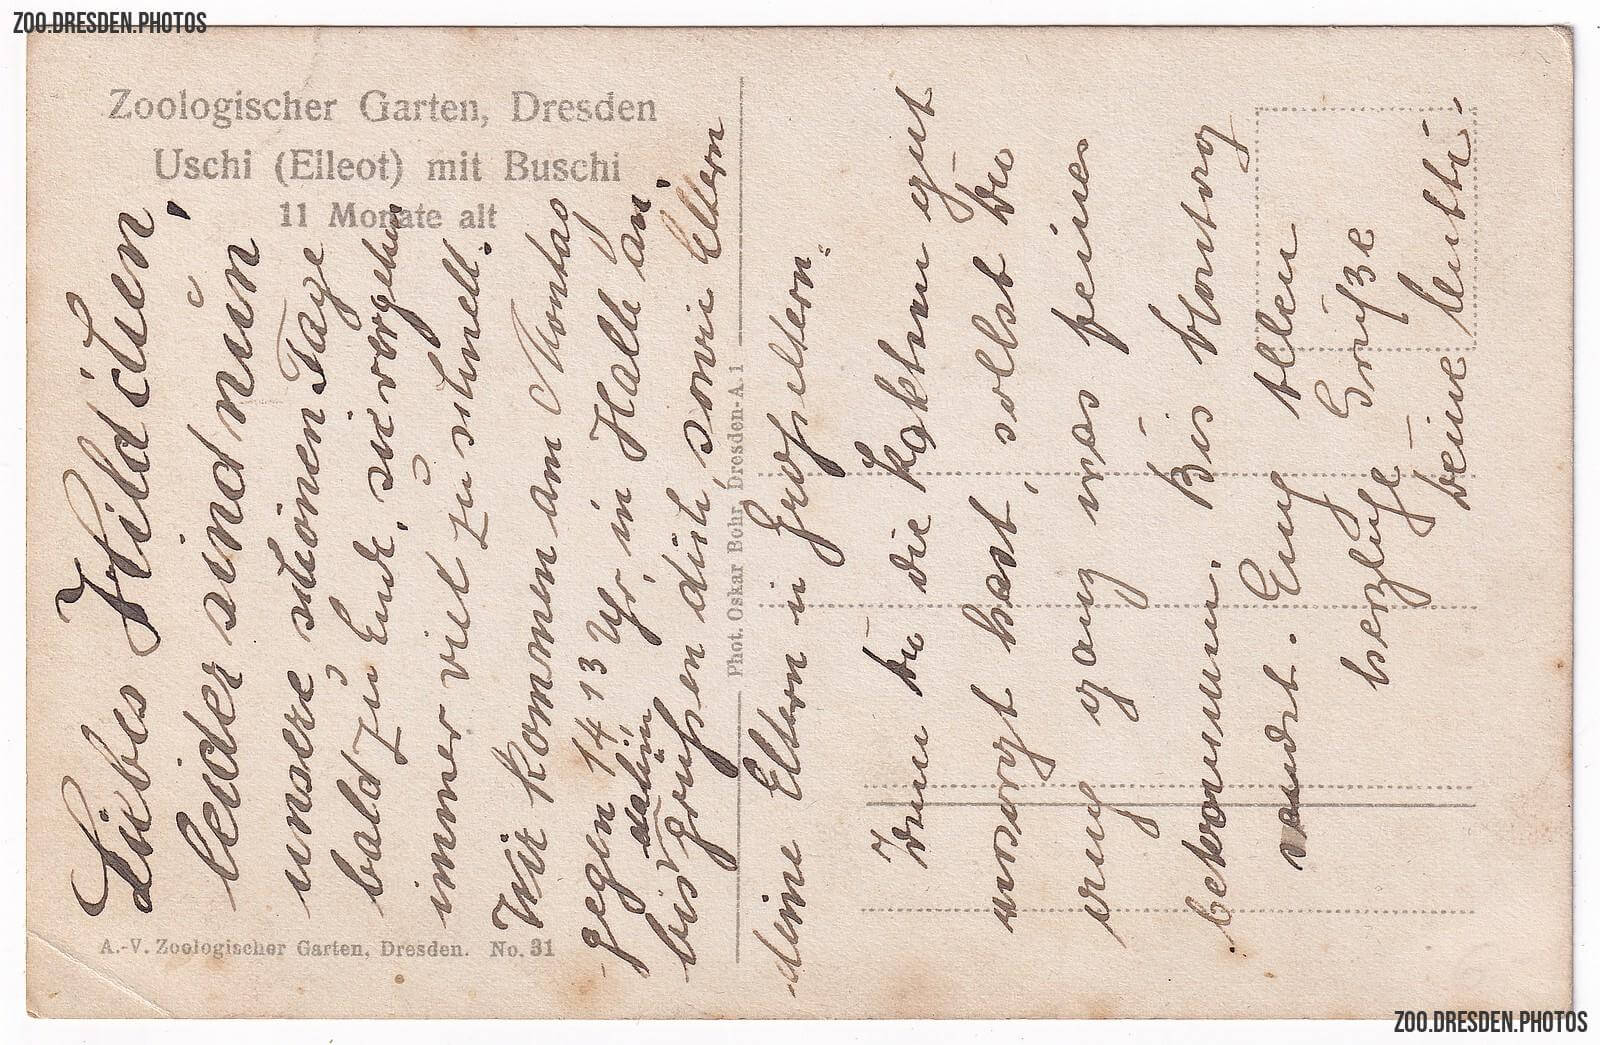 ZOO.DRESDEN.PHOTOS
Zoologischer Garten, Dresden
Uschi (Eileot) mit Buschi
11 Monate alt
Liebes Hildchen,
leider sind nun
unsere schönen Tage
bald zu Ende, sie vergehen
immer viel zu schnell.
Wir kommen am Montag
gegen 14 13 Uhr, in Halle an,
bis dahin
grüßen dich, sowie Eltern
Phot. Oskar Bohr, Dresden-A. 1
deine Eltern u Großeltern.
Wenn Du die gut
versorgt hast, sollst Du
auch ganz was feines
bekommen. Bis Montag
Euch allen
herzliche Grüße
Deine Mutti.
A.-V. Zoologischer Garten, Dresden. No. 31
ZOO.DRESDEN.PHOTOS